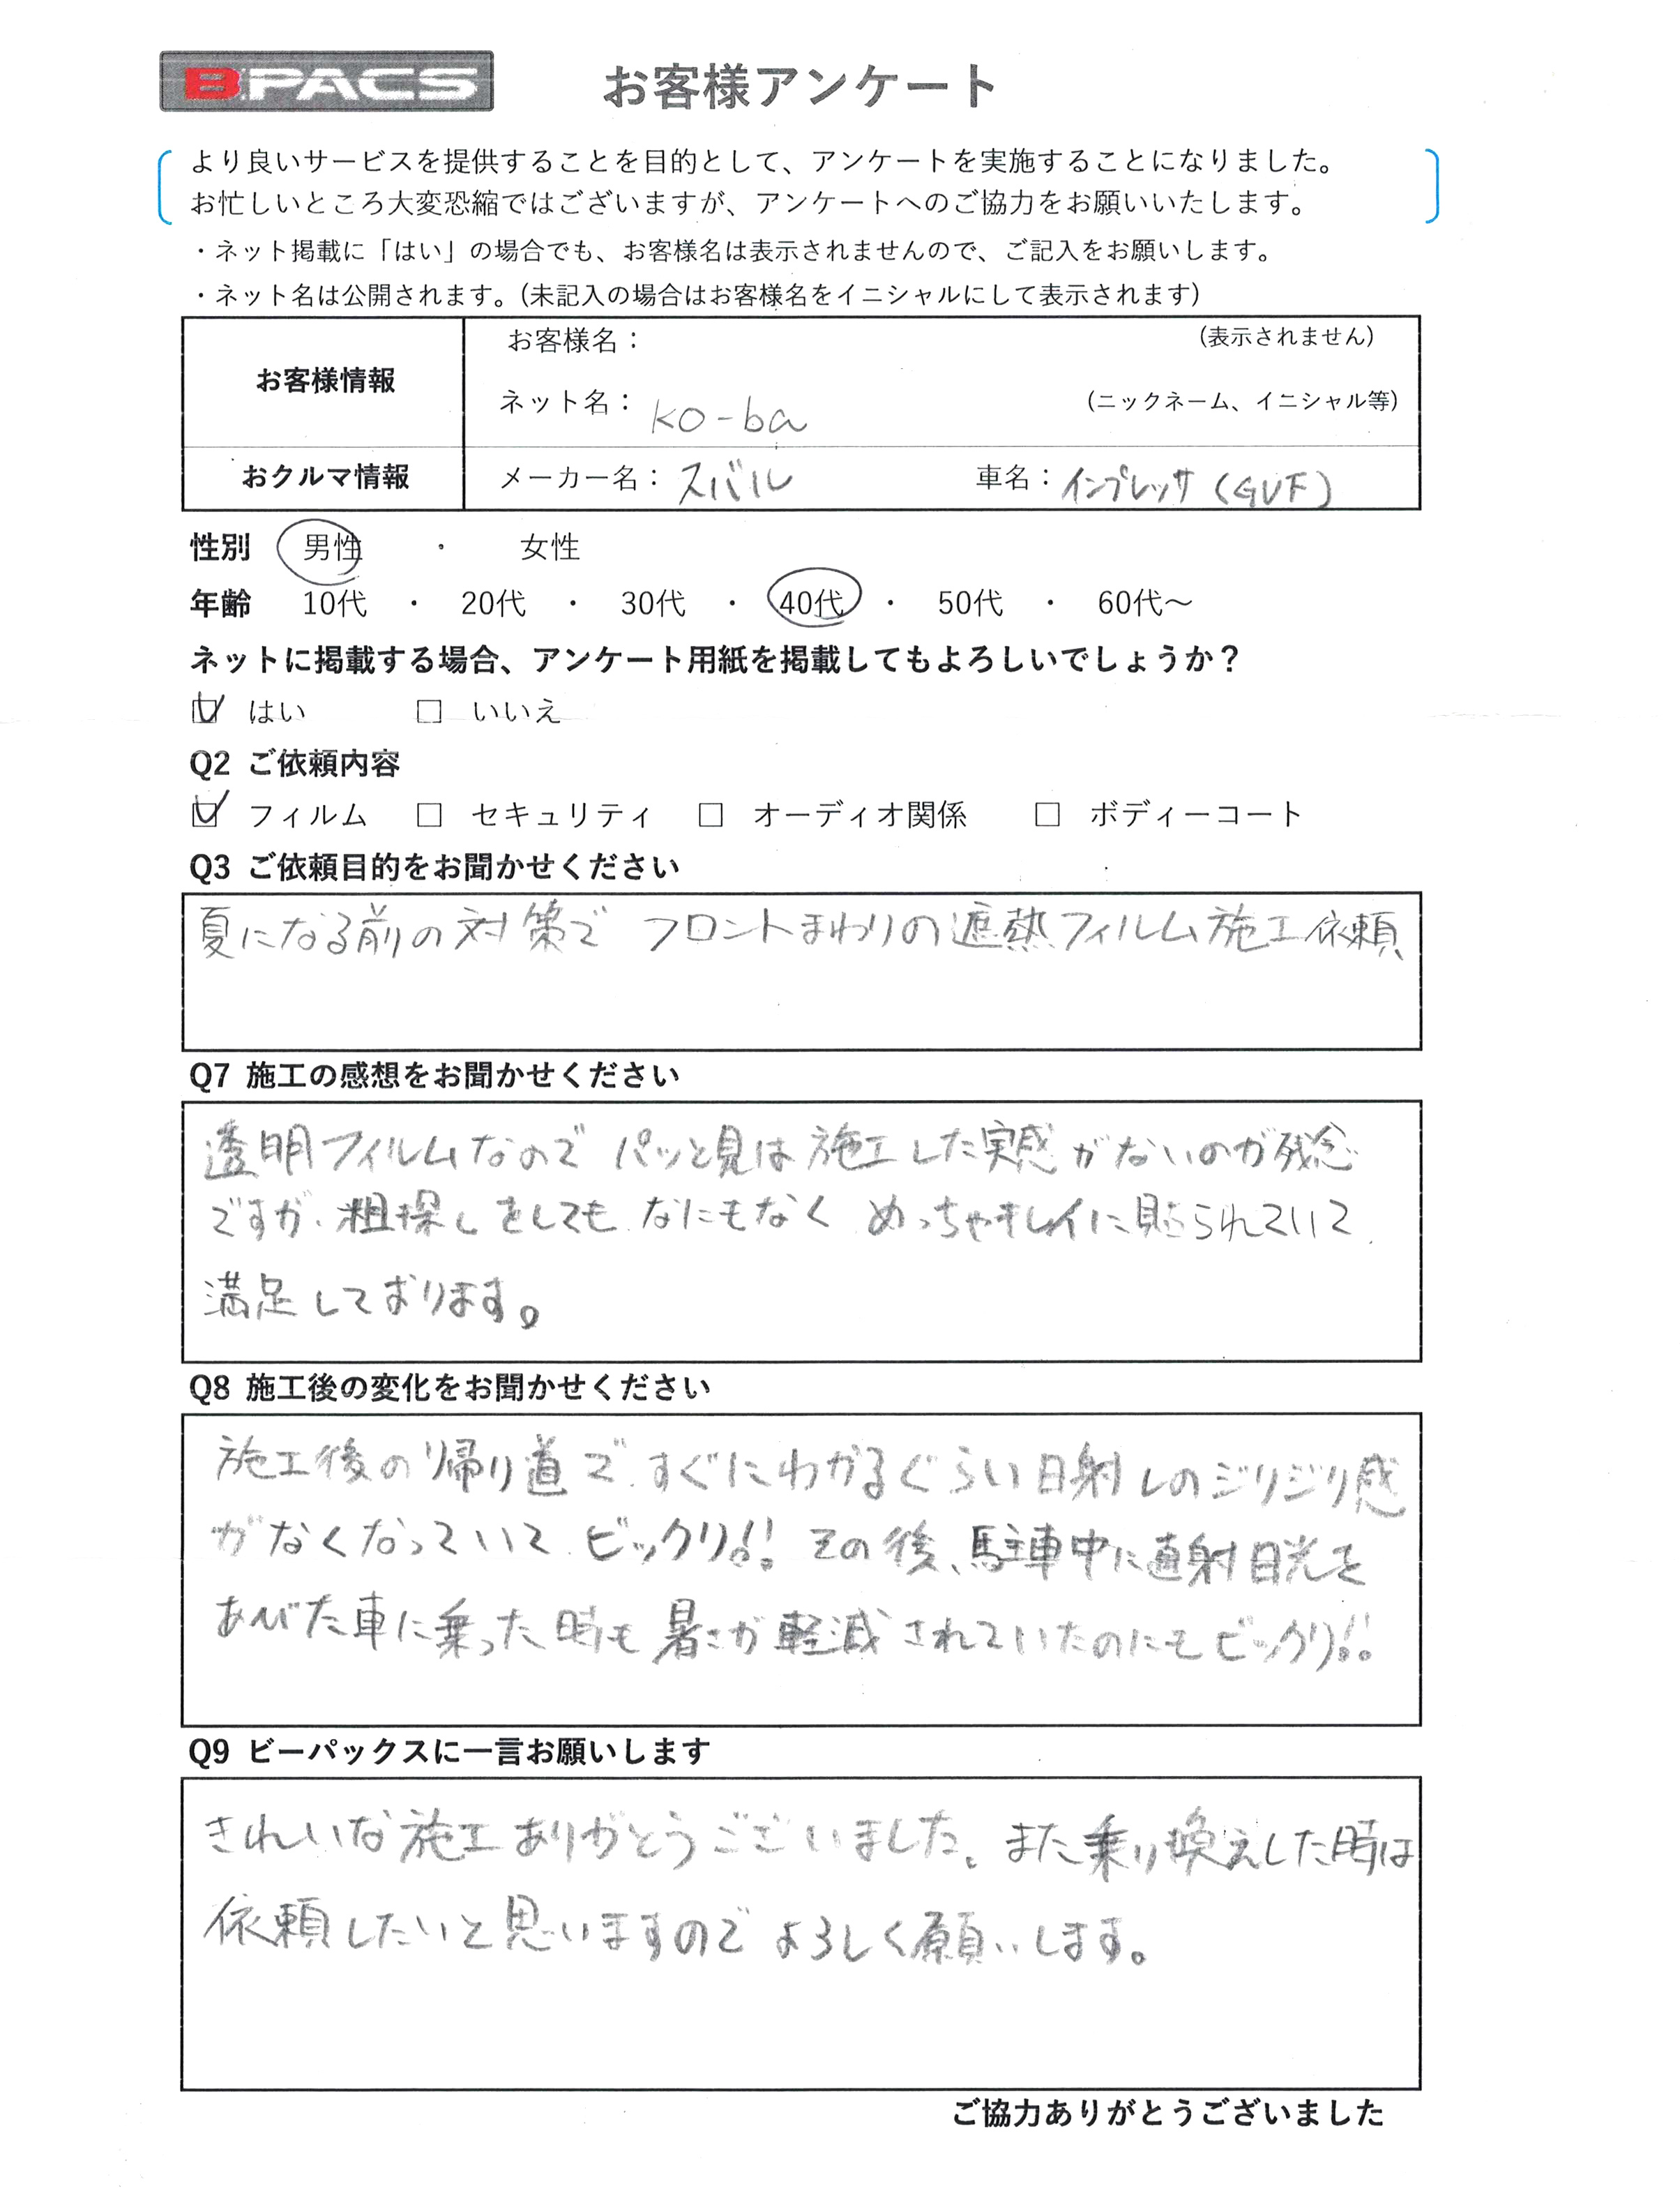 B-PACS お客様アンケート
より良いサービスを提供することを目的として、アンケートを実施することになりました。
お忙しいところ大変恐縮ではございますが、アンケートへのご協力をお願いいたします。
・ネット掲載に「はい」の場合でも、お客様名は表示されませんので、ご記入をお願いします。
・ネット名は公開されます。（未記入の場合はお客様名をイニシャルにして表示されます）
お客様情報 お客様名： （表示されません）
ネット名： ko-ba （ニックネーム、イニシャル等）
おクルマ情報 メーカー名： スバル 車名： インプレッサ（GVF）
性別 男性 ・ 女性
年齢 10代 ・ 20代 ・ 30代 ・ 40代 ・ 50代 ・ 60代～
ネットに掲載する場合、アンケート用紙を掲載してもよろしいでしょうか？
☑ はい □ いいえ
Q2 ご依頼内容
☑ フィルム □ セキュリティ □ オーディオ関係 □ ボディーコート
Q3 ご依頼目的をお聞かせください
夏になる前の対策で フロントまわりの遮熱フィルム施工依頼
Q7 施工の感想をお聞かせください
透明フィルムなので パッと見は施工した実感がないのが残念
ですが、粗探しをしても なにもなく めっちゃキレイに貼られていて
満足しております。
Q8 施工後の変化をお聞かせください
施工後の帰り道で、すぐにわかるぐらい日射しのジリジリ感
がなくなっていて ビックリ!! その後、駐車中に直射日光を
あびた車に乗った時も 暑さが軽減されていたのにも ビックリ!!
Q9 ビーパックスに一言お願いします
きれいな施工ありがとうございました。また乗り換えした時は
依頼したいと思いますので よろしく願いします。
ご協力ありがとうございました